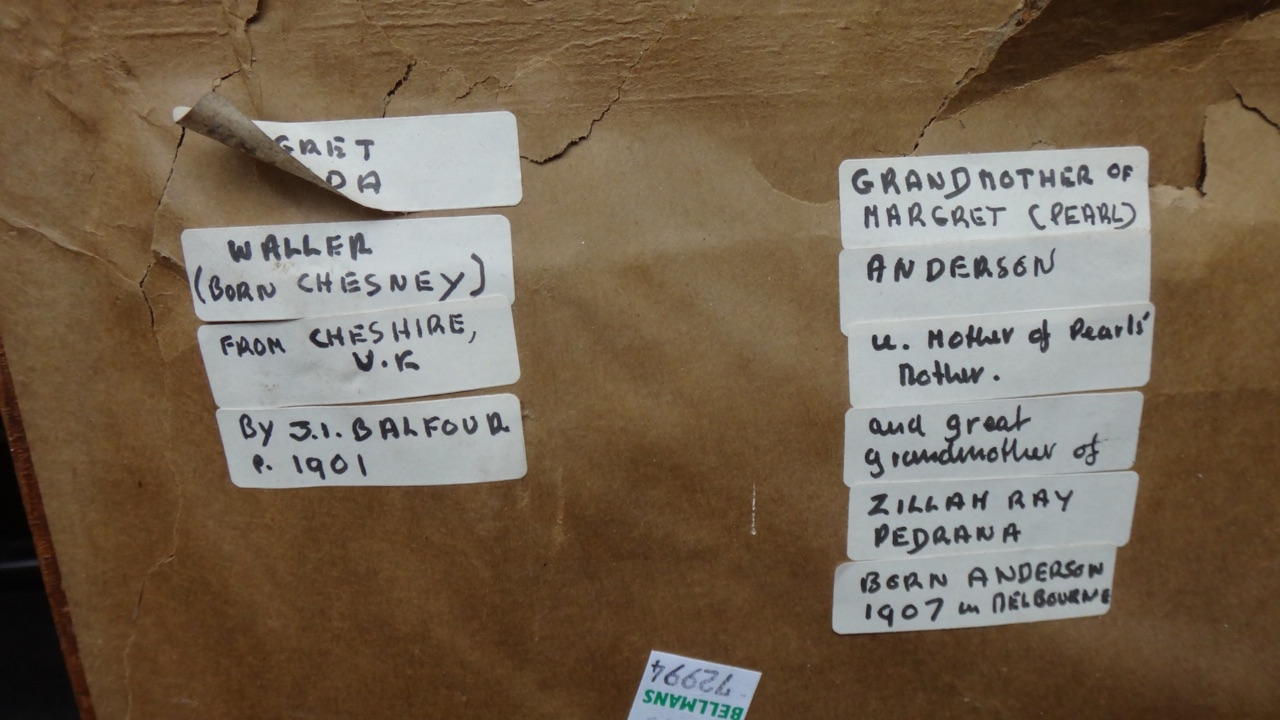 GRET
DA
WALLER
(BORN CHESNEY)
FROM CHESHIRE,
U.K
BY J.I. BALFOUR
P. 1901
GRANDMOTHER OF
MARGRET (PEARL)
ANDERSON
u. Mother of Pearls'
Mother.
and great
grandmother of
ZILLAH RAY
PEDRANA
BORN ANDERSON
1907 in MELBOURNE
72994
BELLMANS